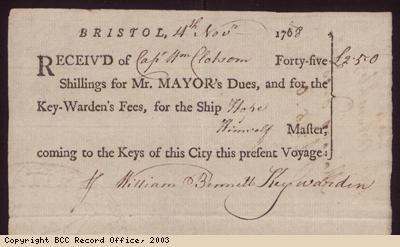 BRISTOL, 4th Novr 1768
RECEIV'D of Capt Wm Clotsom Forty-five £2.5.0
Shillings for Mr. MAYOR's Dues, and for the
Key-Warden's Fees, for the Ship Hope
Himself Master,
coming to the Keys of this City this present Voyage:
William Bennett Keywarden
Copyright BCC Record Office, 2003